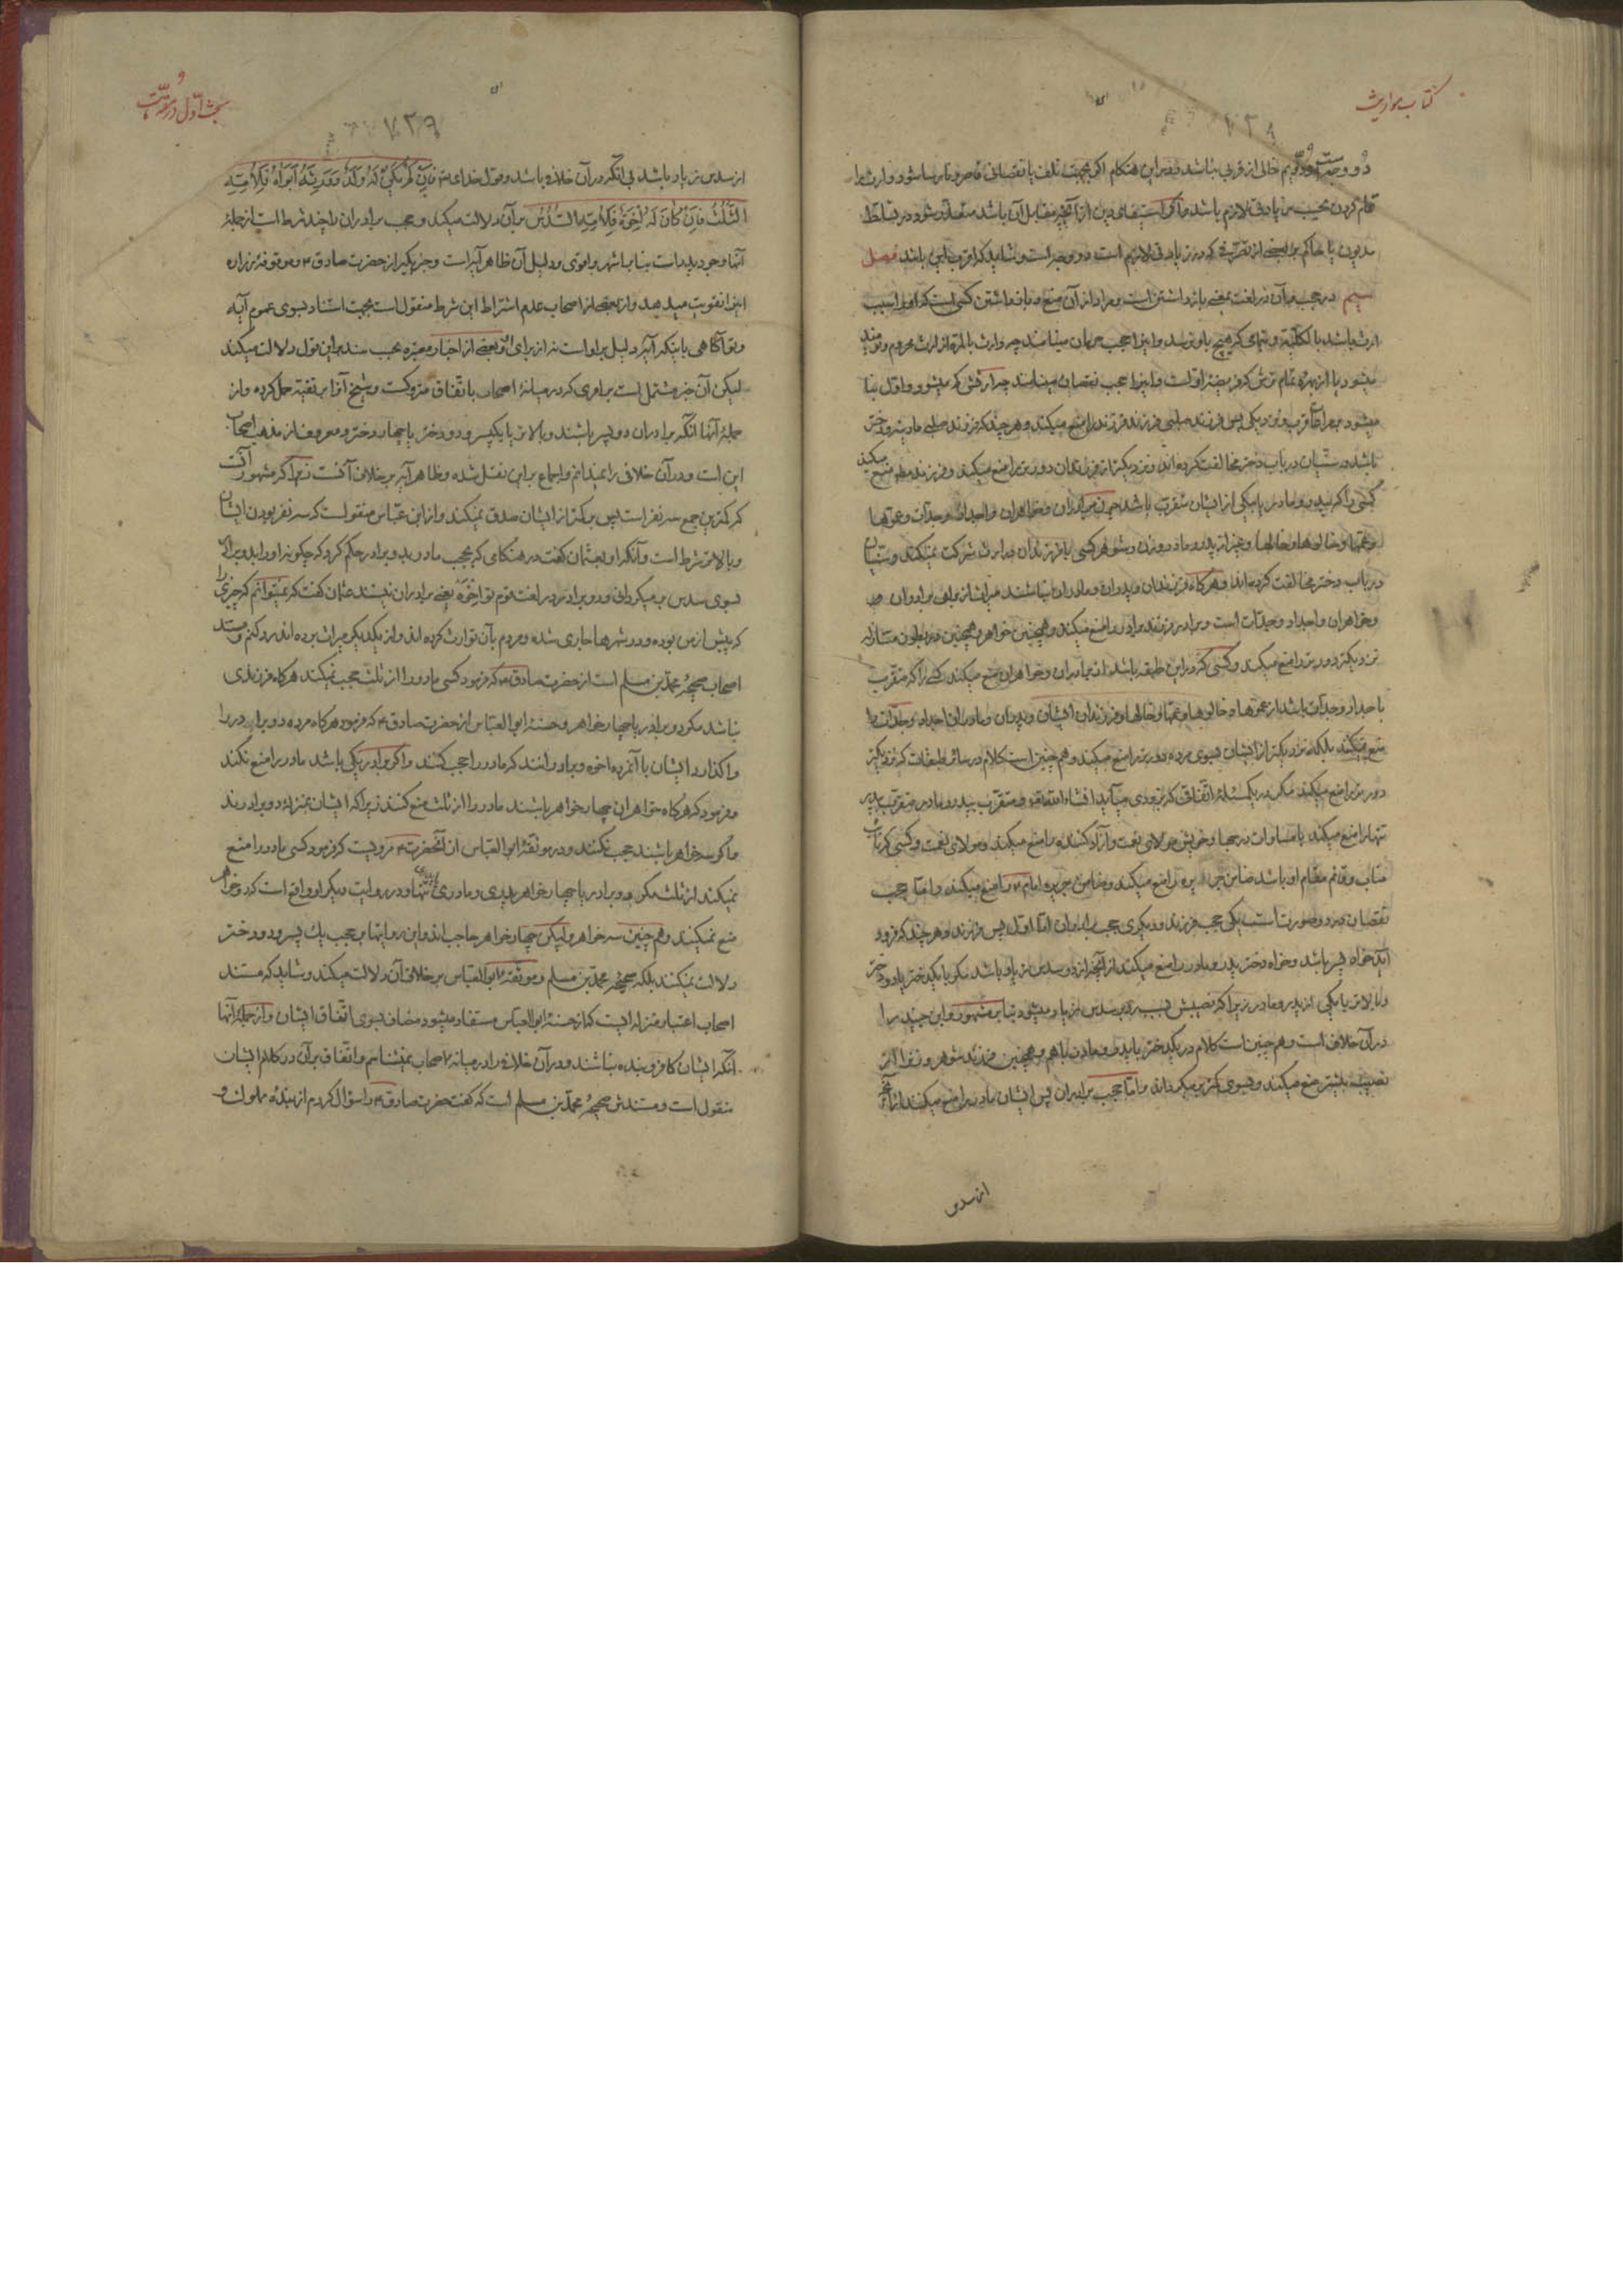 کتاب مواریث
۷۳۸
خالی از قربی نباشد و در این هنگام اگر بجهت تلف یا نقصانی قاصر و نارسا شود وارث را
لازم باشد و آنچه مقابل آن باشد
مدیون یا حاکم بعضی از زیادتی لازم است دو وجه است و شاید که اقرب این باشد فصل
سیم در حجب و آن در لغت بمعنی بازداشتن است و مراد از آن منع و بازداشتن کسی است که او را سبب
ارث باشد بالکلیه و تمامی که هیچ باو نرسد و این را حجب حرمان مینامند چه وارث بالمرة از ارث محروم و نومید
میشود یا از بهره تمام ترش که فریضه او است و این را حجب نقصان مینامند چرا ارثش کم میشود و اول بنا
میشود بمراعات قرب و نزدیکی پس فرزند صلبی فرزند فرزند را منع میکند و هر چند که فرزند صلبی ماده و دختر
باشد و سنیان در باب دختر مخالفت کرده‌اند و نزدیکتر از فرزندان دورتر را منع میکند و فرزند منع میکند
کسی را که بپدر و مادر یا بیکی از ایشان متقرب باشد چون برادران و خواهران و اجداد و جدات و عموها
و عمها و خالوها و خالها و غیر از پدر و مادر و زن و شوهر کسی با فرزندان در ارث شرکت نمیکند و سنیان
در باب دختر مخالفت کرده‌اند و هر گاه فرزندان و پدران و مادران نباشند میراث از برای برادران
و خواهران و اجداد و جدات است و برادر فرزند برادر را منع میکند و همچنین خواهر و همچنین در بطون متنازله
نزدیکتر دورتر را منع میکند و کسی که در این طبقه باشد از برادران و خواهران منع میکند کسی را که متقرب
باجداد و جدات باشد از عموها و خالوها و عمها و خالها و فرزندان ایشان و پدران و مادران اجداد و جدات را
منع نمیکنند بلکه نزدیکتر از ایشان بسوی مرده دورتر را منع میکند و هم چنین است کلام در سائر طبقات که نزدیکتر
دورتر را منع میکند مگر در یک مسئله اتفاقی که بزودی میآید انشاء الله تعالی و متقرب بپدر و مادر متقرب بپدر
تنها را منع میکند با مساوات درجها و خویش مولای نعمت و آزاد کننده را منع میکند و مولای نعمت و کسی که نائب
مناب و قائم مقام او باشد ضامن جریره را منع میکند و ضامن جریره امام ع را منع میکند و اما حجب
نقصان در دو صورت است یکی حجب فرزند و دیگری حجب برادران اما اول پس فرزند و هر چند که فرود
آید خواه پسر باشد و خواه دختر پدر و مادر را منع میکند از آنچه از دو سدس زیاد باشد مگر با یکدختر یا دو دختر
و بالاتر با یکی از پدر و مادر زیرا که نصیبش بسبب رد بر سدس زیاد میشود بنا بر مشهور و ابن جنید را
در آن خلاف است و هم چنین است کلام در یکدختر با پدر و مادر با هم و همچنین فرزند شوهر و زن را از
نصیب بیشتر منع میکند و بسوی کمتر بر میگرداند و اما حجب برادران پس ایشان مادر را منع میکنند از آنچه
از سدس
بحث اول در
۷۳۹
از سدس زیاد باشد بی آنکه در آن خلافی باشد و قول خدای تع فَاِنْ لَمْ یَکُنْ لَهُ وَلَدٌ وَ وَرِثَهُ اَبَوَاهُ فَلِاُمِّهِ
الثُّلُثُ فَاِنْ کَانَ لَهُ اِخْوَةٌ فَلِاُمِّهِ السُّدُسُ بر آن دلالت میکند و حجب برادران را چند شرط است از جمله
آنها وجود پدر است بنا باشهر و اقوی و دلیل آن ظاهر آیه است و خبر بکیر از حضرت صادق ع و موقوفه زراره
این را تقویت میدهد و از بعضی از اصحاب عدم اشتراط این شرط منقول است بجهت استناد بسوی عموم آیه
و تو آگاهی باینکه آیه دلیل بر او است نه از برای او و بعضی از اخبار معتبره بحسب سند بر این قول دلالت میکند
لیکن آن خبر مشتمل است بر امری که در میانه اصحاب باتفاق متروکست و شیخ آنرا بر تقیه حمل کرده و از
جمله آنها آنکه برادران دو پسر باشند و بالاتر یا یکپسر و دو دختر یا چهار دختر و معروف از مذهب اصحاب
این است و در آن خلافی را نمیدانم و اجماع بر این نقل شده و ظاهر آیه بر خلاف آنست زیرا که مشهور آنست
که کمترین جمع سه نفر است پس بر کمتر از ایشان صدق نمیکند و از ابن عباس منقولست که سه نفر بودن ایشان
و بالاتر شرط است و آنکه او بعثمان گفت در هنگامی که بحجب مادر بدو برادر حکم کرد که چگونه او را بدو برادر
بسوی سدس بر میگردانی و دو برادر در لغت قوم تو اخوه یعنی برادران نیستند عثمان گفت که نمیتوانم که چیزی را
که پیش از من بوده و در شهرها جاری شده و مردم بآن توارث کرده‌اند و از یکدیگر میراث برده‌اند رد کنم و مستند
اصحاب صحیحه محمد بن مسلم است از حضرت صادق ع که فرمود کسی مادر را از ثلث حجب نمیکند هر گاه فرزندی
نباشد مگر دو برادر یا چهار خواهر و حسنه ابو العباس از حضرت صادق ع که فرمود هر گاه مرده دو برادر را
واگذارد ایشان با آنمرده اخوه و برادرانند که مادر را حجب کنند و اگر برادر یکی باشد مادر را منع نکند
و فرمود که هر گاه خواهران چهار خواهر باشند مادر را از ثلث منع کنند زیرا که ایشان بمنزله دو برادرند
و اگر سه خواهر باشند حجب نکنند و در موثقه ابو العباس از آنحضرت ع مرویست که فرمود کسی مادر را منع
نمیکند از ثلث مگر دو برادر یا چهار خواهر پدری و مادری یا پدری تنها و در روایت دیگر او واقع است که دو خواهر
منع نمیکنند و هم چنین سه خواهر و لیکن چهار خواهر حاجب‌اند و این روایتها بر حجب یک پسر و دو دختر
دلالت نمیکنند بلکه صحیحه محمد بن مسلم و موثقه ابو العباس بر خلاف آن دلالت میکند و شاید که مستند
اصحاب اعتبار منزله ایست که از حسنه ابو العباس مستفاد میشود مضاف بسوی اتفاق ایشان و از جمله آنها
آنکه ایشان کافر و بنده نباشند و در آن خلافی را در میانه اصحاب نمیشناسم و اتفاق بر آن در کلام ایشان
منقول است و مستندش صحیحه محمد بن مسلم است که گفت حضرت صادق ع را سؤال کردم از بنده مملوک و